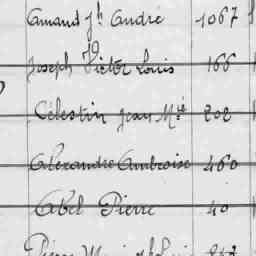 Amand Jh André 1067
Joseph Victor Louis 166
Célestin Jean Mie 202
Alexandre Ambroise 460
Abel Pierre 40
Pierre